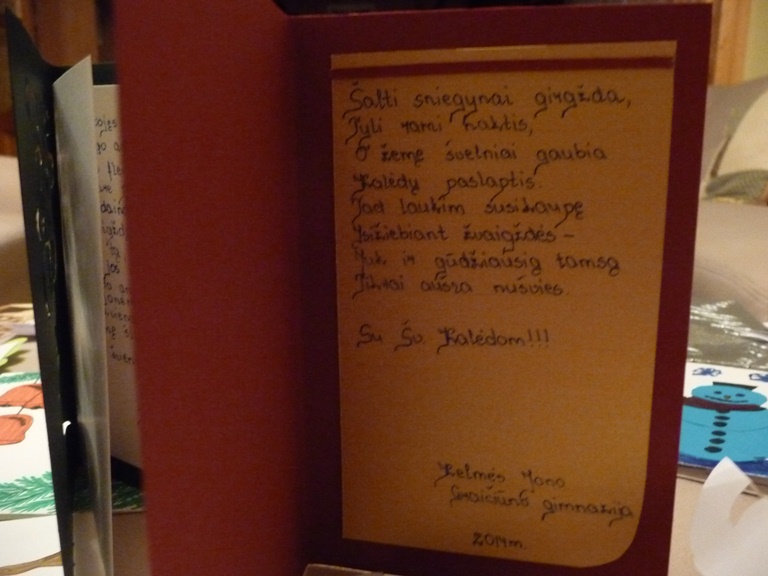 Šalti sniegynai girgžda,
Tyli rami naktis,
O žemę švelniai gaubia
Kalėdų paslaptis.
Tad laukim susikaupę
Įsižiebiant žvaigždės –
Juk ir gūdžiausią tamsą
Tikrai aušra nušvies.
Su Šv. Kalėdom!!!
Kelmės Jono
Graičiūno gimnazija
2014m.